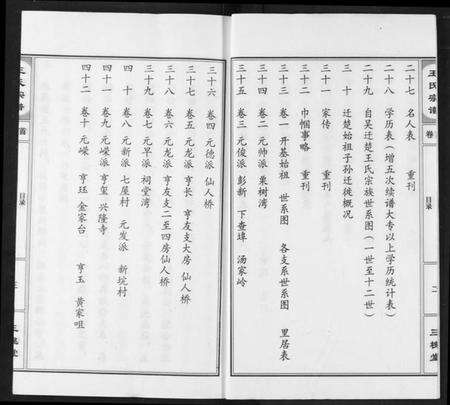 王氏宗谱
卷首
目录
二
三槐堂
二十七 名人表 重刊
二十八 学历表（增五次续谱大专以上学历统计表）
二十九 自吴迁楚王氏宗族世系图（一世至十二世）
三十 迁楚始祖子孙迁徙概况
三十一 家传 重刊
三十二 巾帼事略 重刊
三十三 卷一 开基始祖 世系图 各支系世系图 里居表
三十四 卷二 元帅派 粟树湾
三十五 卷三 元俊派 彭新 下查埠 汤家岭
三十六 卷四 元德派 仙人桥
三十七 卷五 元龙派 亨长 亨友支大房 仙人桥
三十八 卷六 元龙派 亨友支二至四房仙人桥
三十九 卷七 元早派 祠堂湾
四十 卷八 元新派 七屋村 元发派 新垸村
四十一 卷九 元嵘 亨玺 兴隆寺
四十二 卷十 元嵘 亨珏 金家台 亨玉 黄家咀
首
目录
三
三槐堂